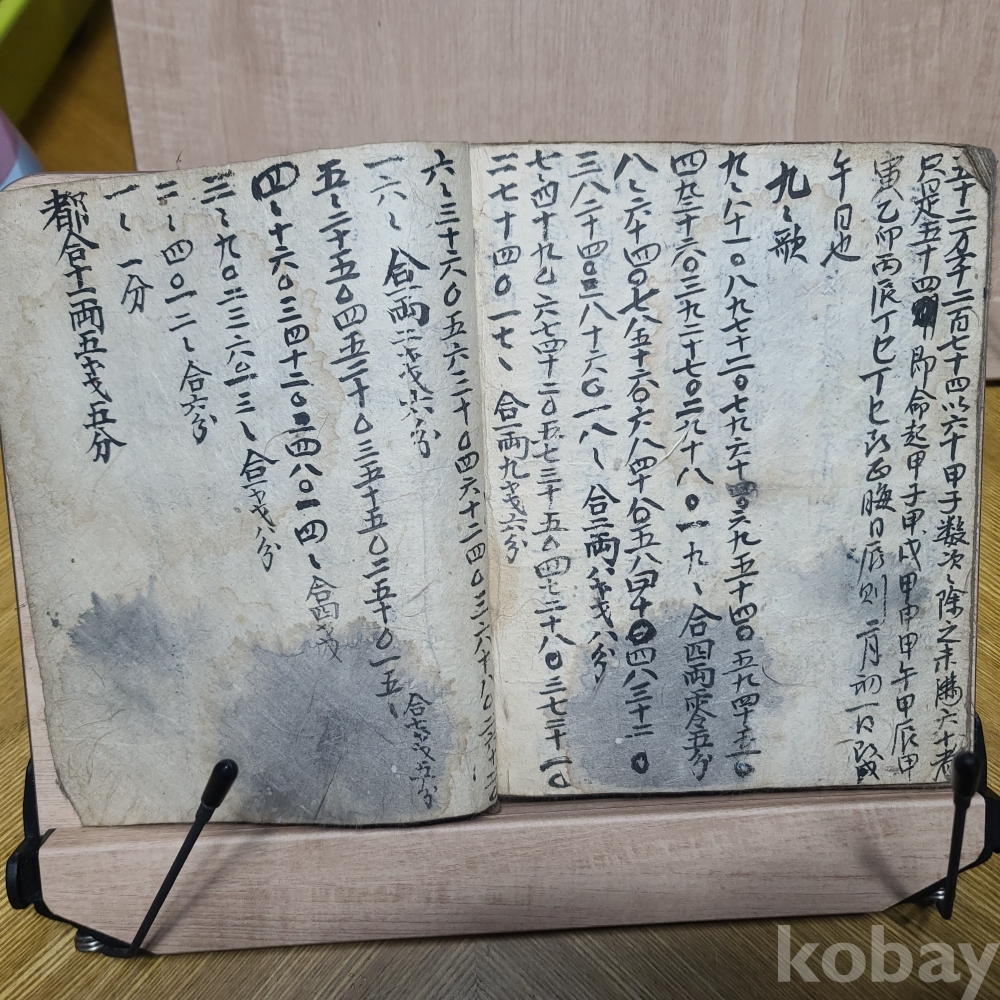 五十二万六千二百七十四以六十甲子数次〻除之未満六十者
只是五十四 即命起甲子甲戌甲申甲午甲辰甲
寅乙卯丙辰丁巳丁巳即正晦日辰則二月初一日
午日也
九〻歌
九〻八十一〇八九七十二〇七九六十 〇六九五十四〇五九四十五〇
四九三十六〇三九二十七〇二九十八〇一九〻合四両零五分
八〻六十四〇七八五十六〇六八四十八〇五八四十〇四八三十二〇
三八二十四〇二八十六〇一八〻合二両八戋八分
七〻四十九〇六七四十二〇五七三十五〇四七二十八〇三七二十一〇
二七十四〇一七〻合一両九戋六分
六〻三十六〇五六三十〇四六十二四〇三六十八〇二六十二〇
一六〻合一両二戋六分
五〻二十五〇四五二十〇三五十五〇二五十〇一五〻合七戋五分
四〻十六〇三四十二〇二四八〇一四〻合四戋
三〻九〇二三六〇一三〻合一戋八分
二〻四〇一二〻合六分
一〻一分
都合十一両五戋五分
kobay